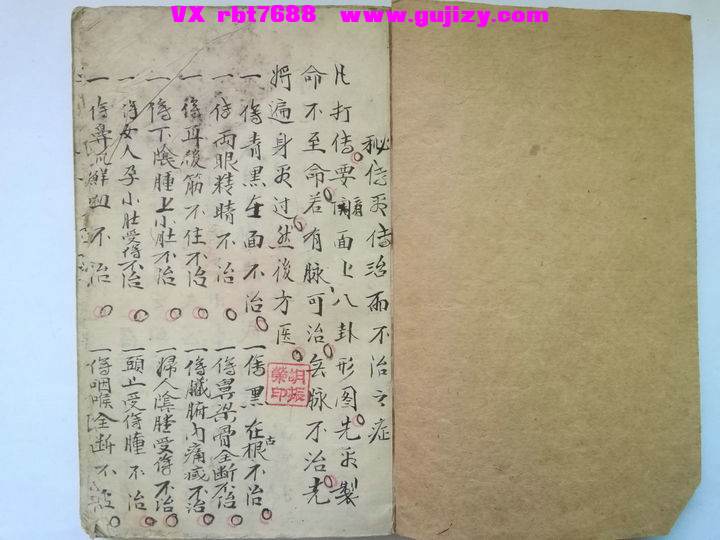 VX rbt7688 www.gujizy.com
秘傳看傷治而不治之症
凡打傷要看面上八卦形图先看製
命不至命若有脉可治無脉不治先
將遍身看过然後方医
一傷青黑全面不治
一傷黑在根不治
一傷两眼精睛不治
一傷鼻梁骨全断不治
一傷耳後筋不住不治
一傷臟腑内痛或不治
一傷下陰腫上小肚不治
一婦人陰勝受傷不治
一傷女人孕小肚受傷不治
一頭上受傷腫不治
一傷鼻流鮮血不治
一傷咽喉全断不
胡振榮印